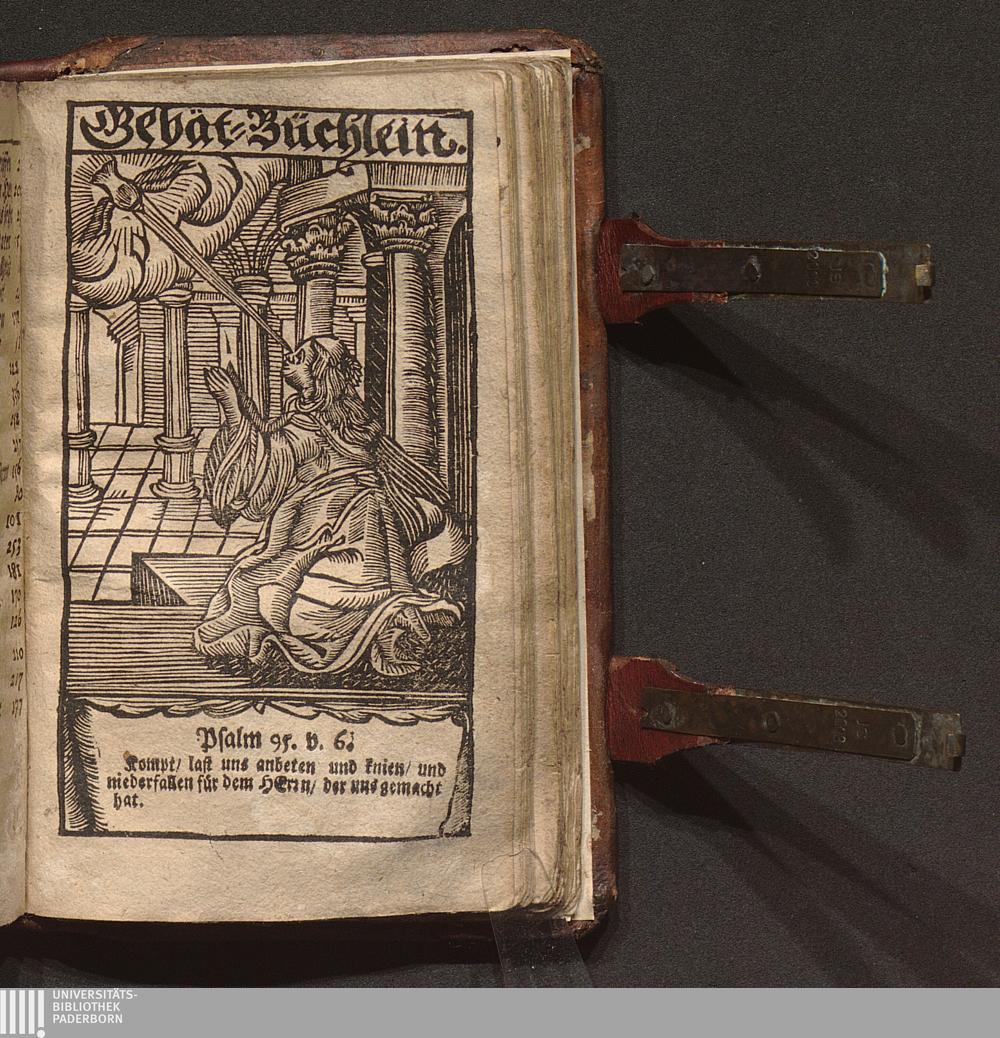 Gebät-Büchlein.
Psalm 95. v. 6.
Kompt/ last uns anbeten und knien/ und
niederfallen für dem HErrn/ der uns gemacht
hat.
108
253
181
170
126
110
217
177
UNIVERSITÄTS-
BIBLIOTHEK
PADERBORN